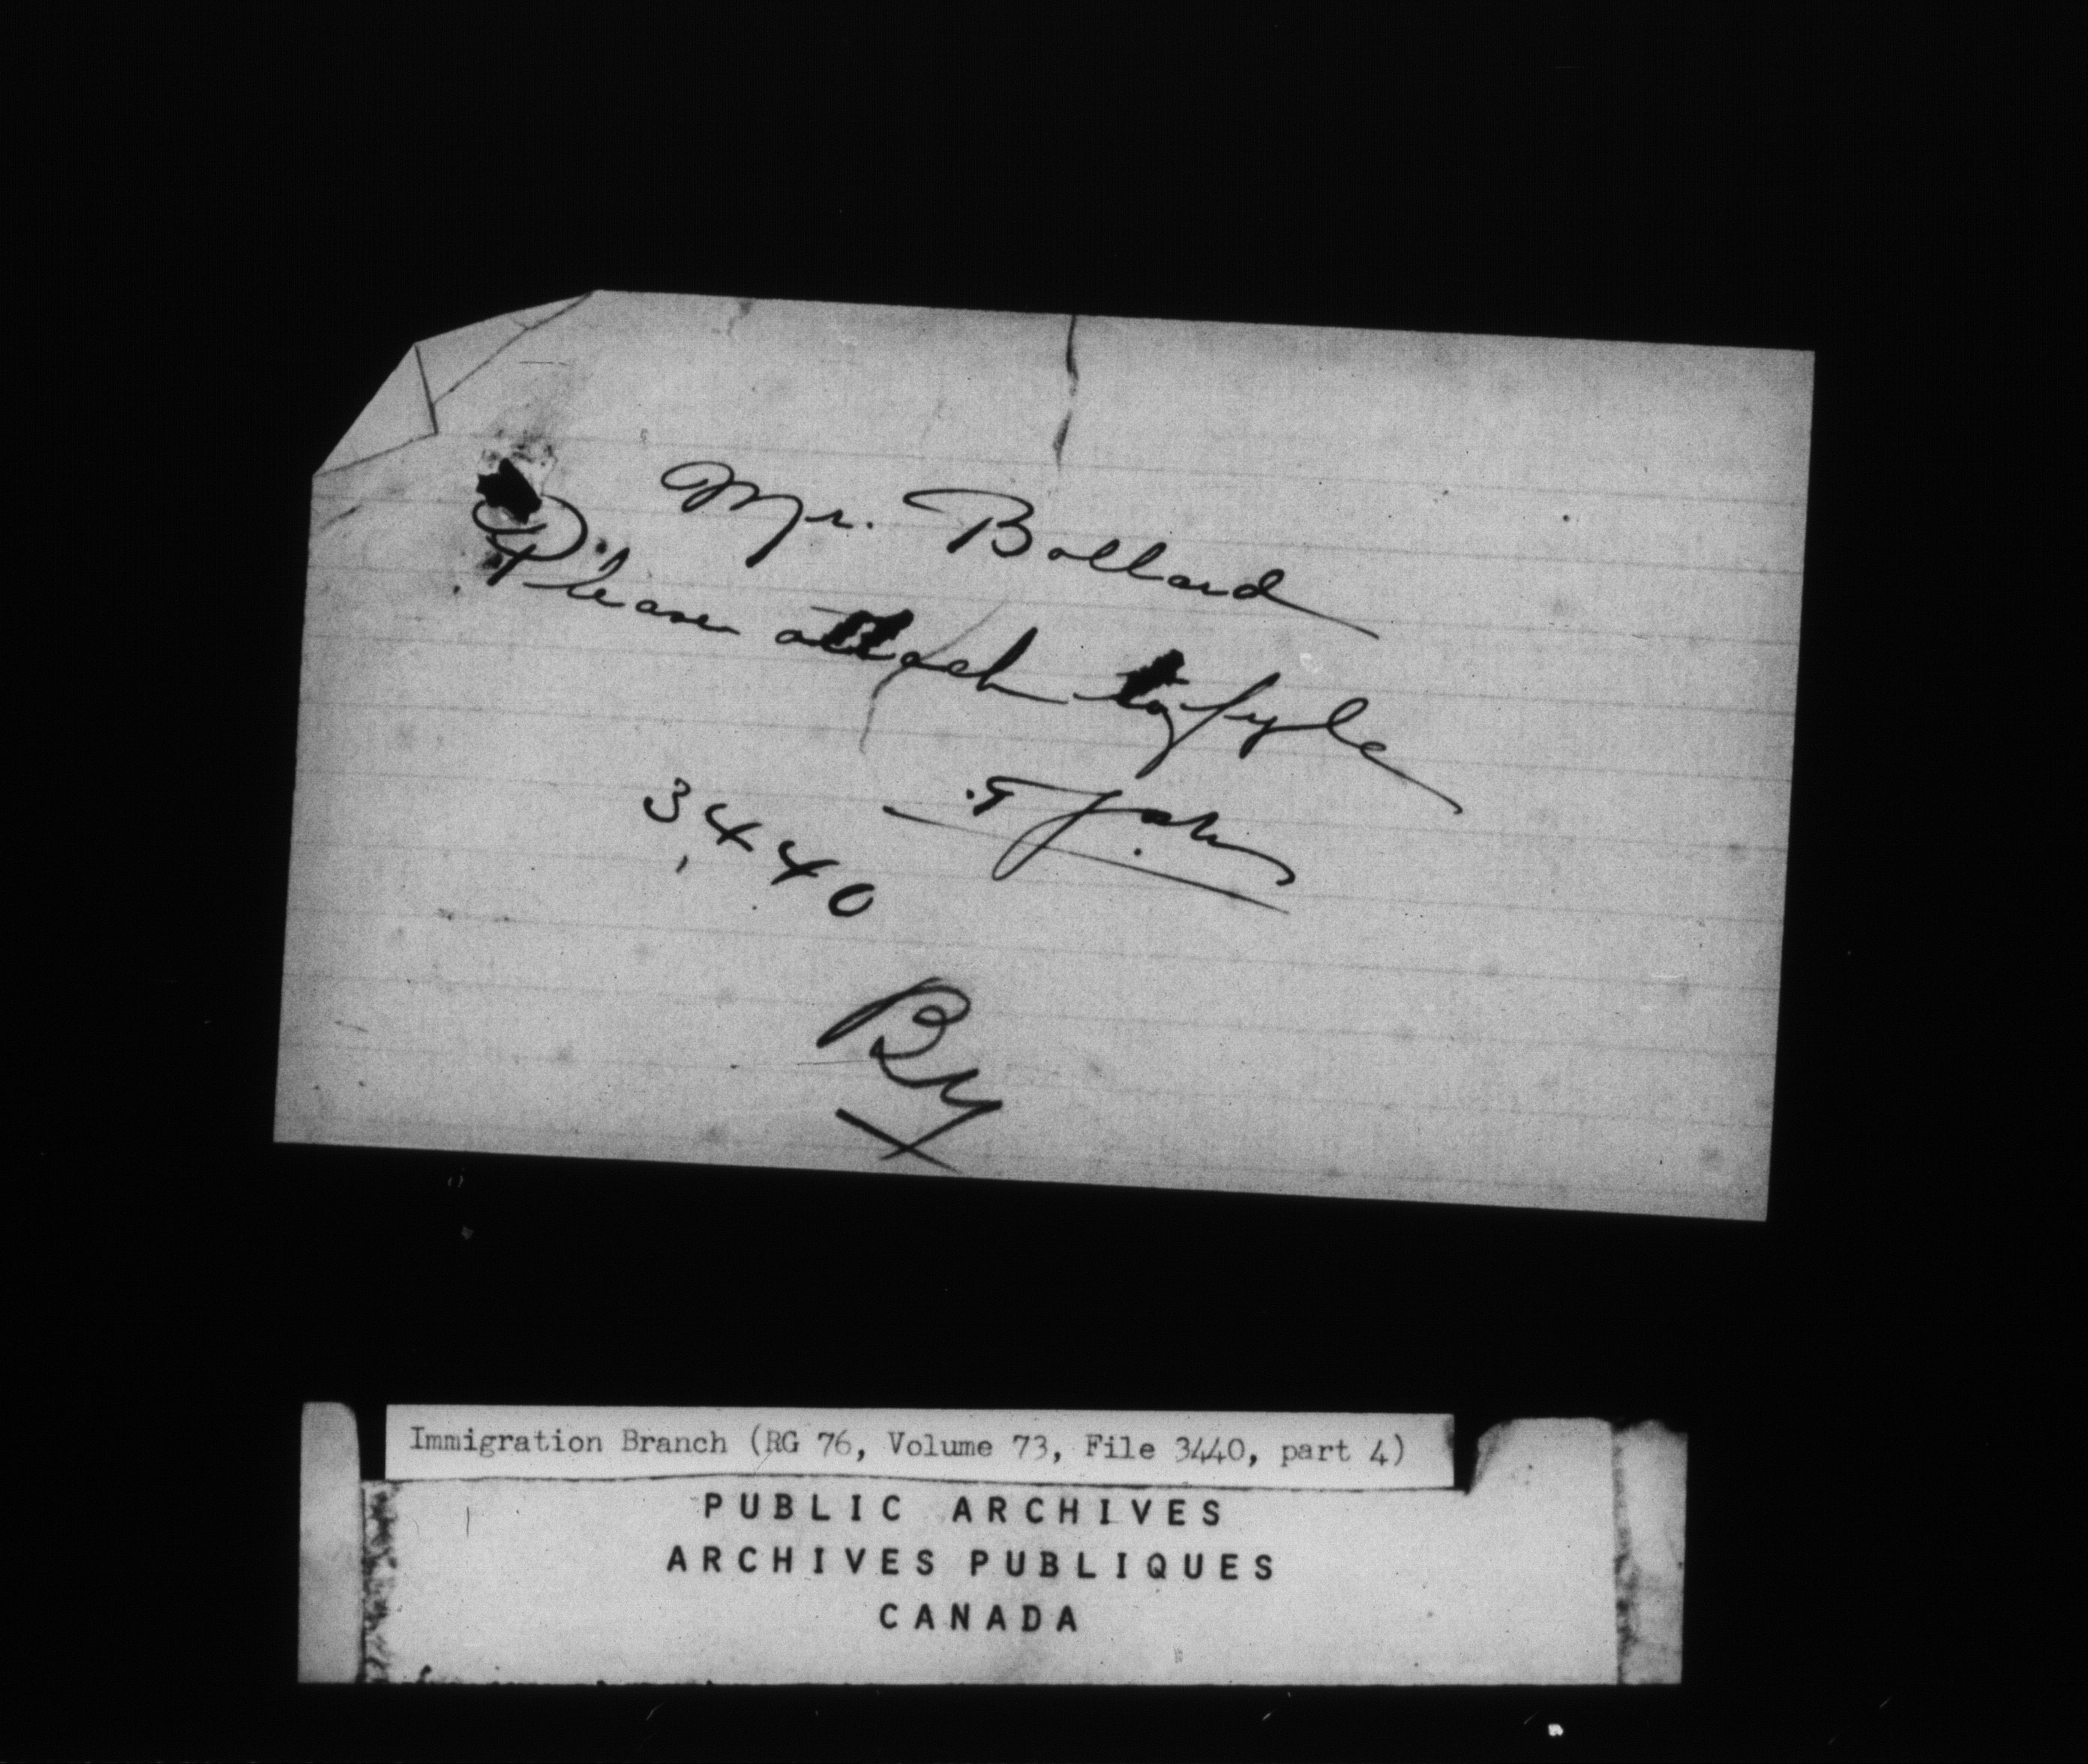 Mr. Bolland
Please attach to fyle
3440
By
Immigration Branch (RG 76, Volume 73, File 3440, part 4)
PUBLIC ARCHIVES
ARCHIVES PUBLIQUES
CANADA